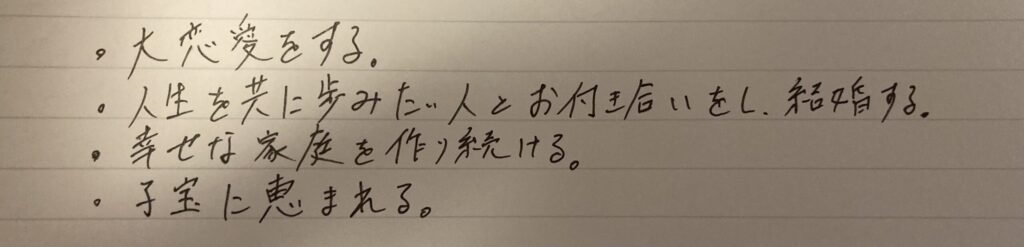 ・大恋愛をする。
・人生を共に歩みたい人とお付き合いをし、結婚する。
・幸せな家庭を作り続ける。
・子宝に恵まれる。